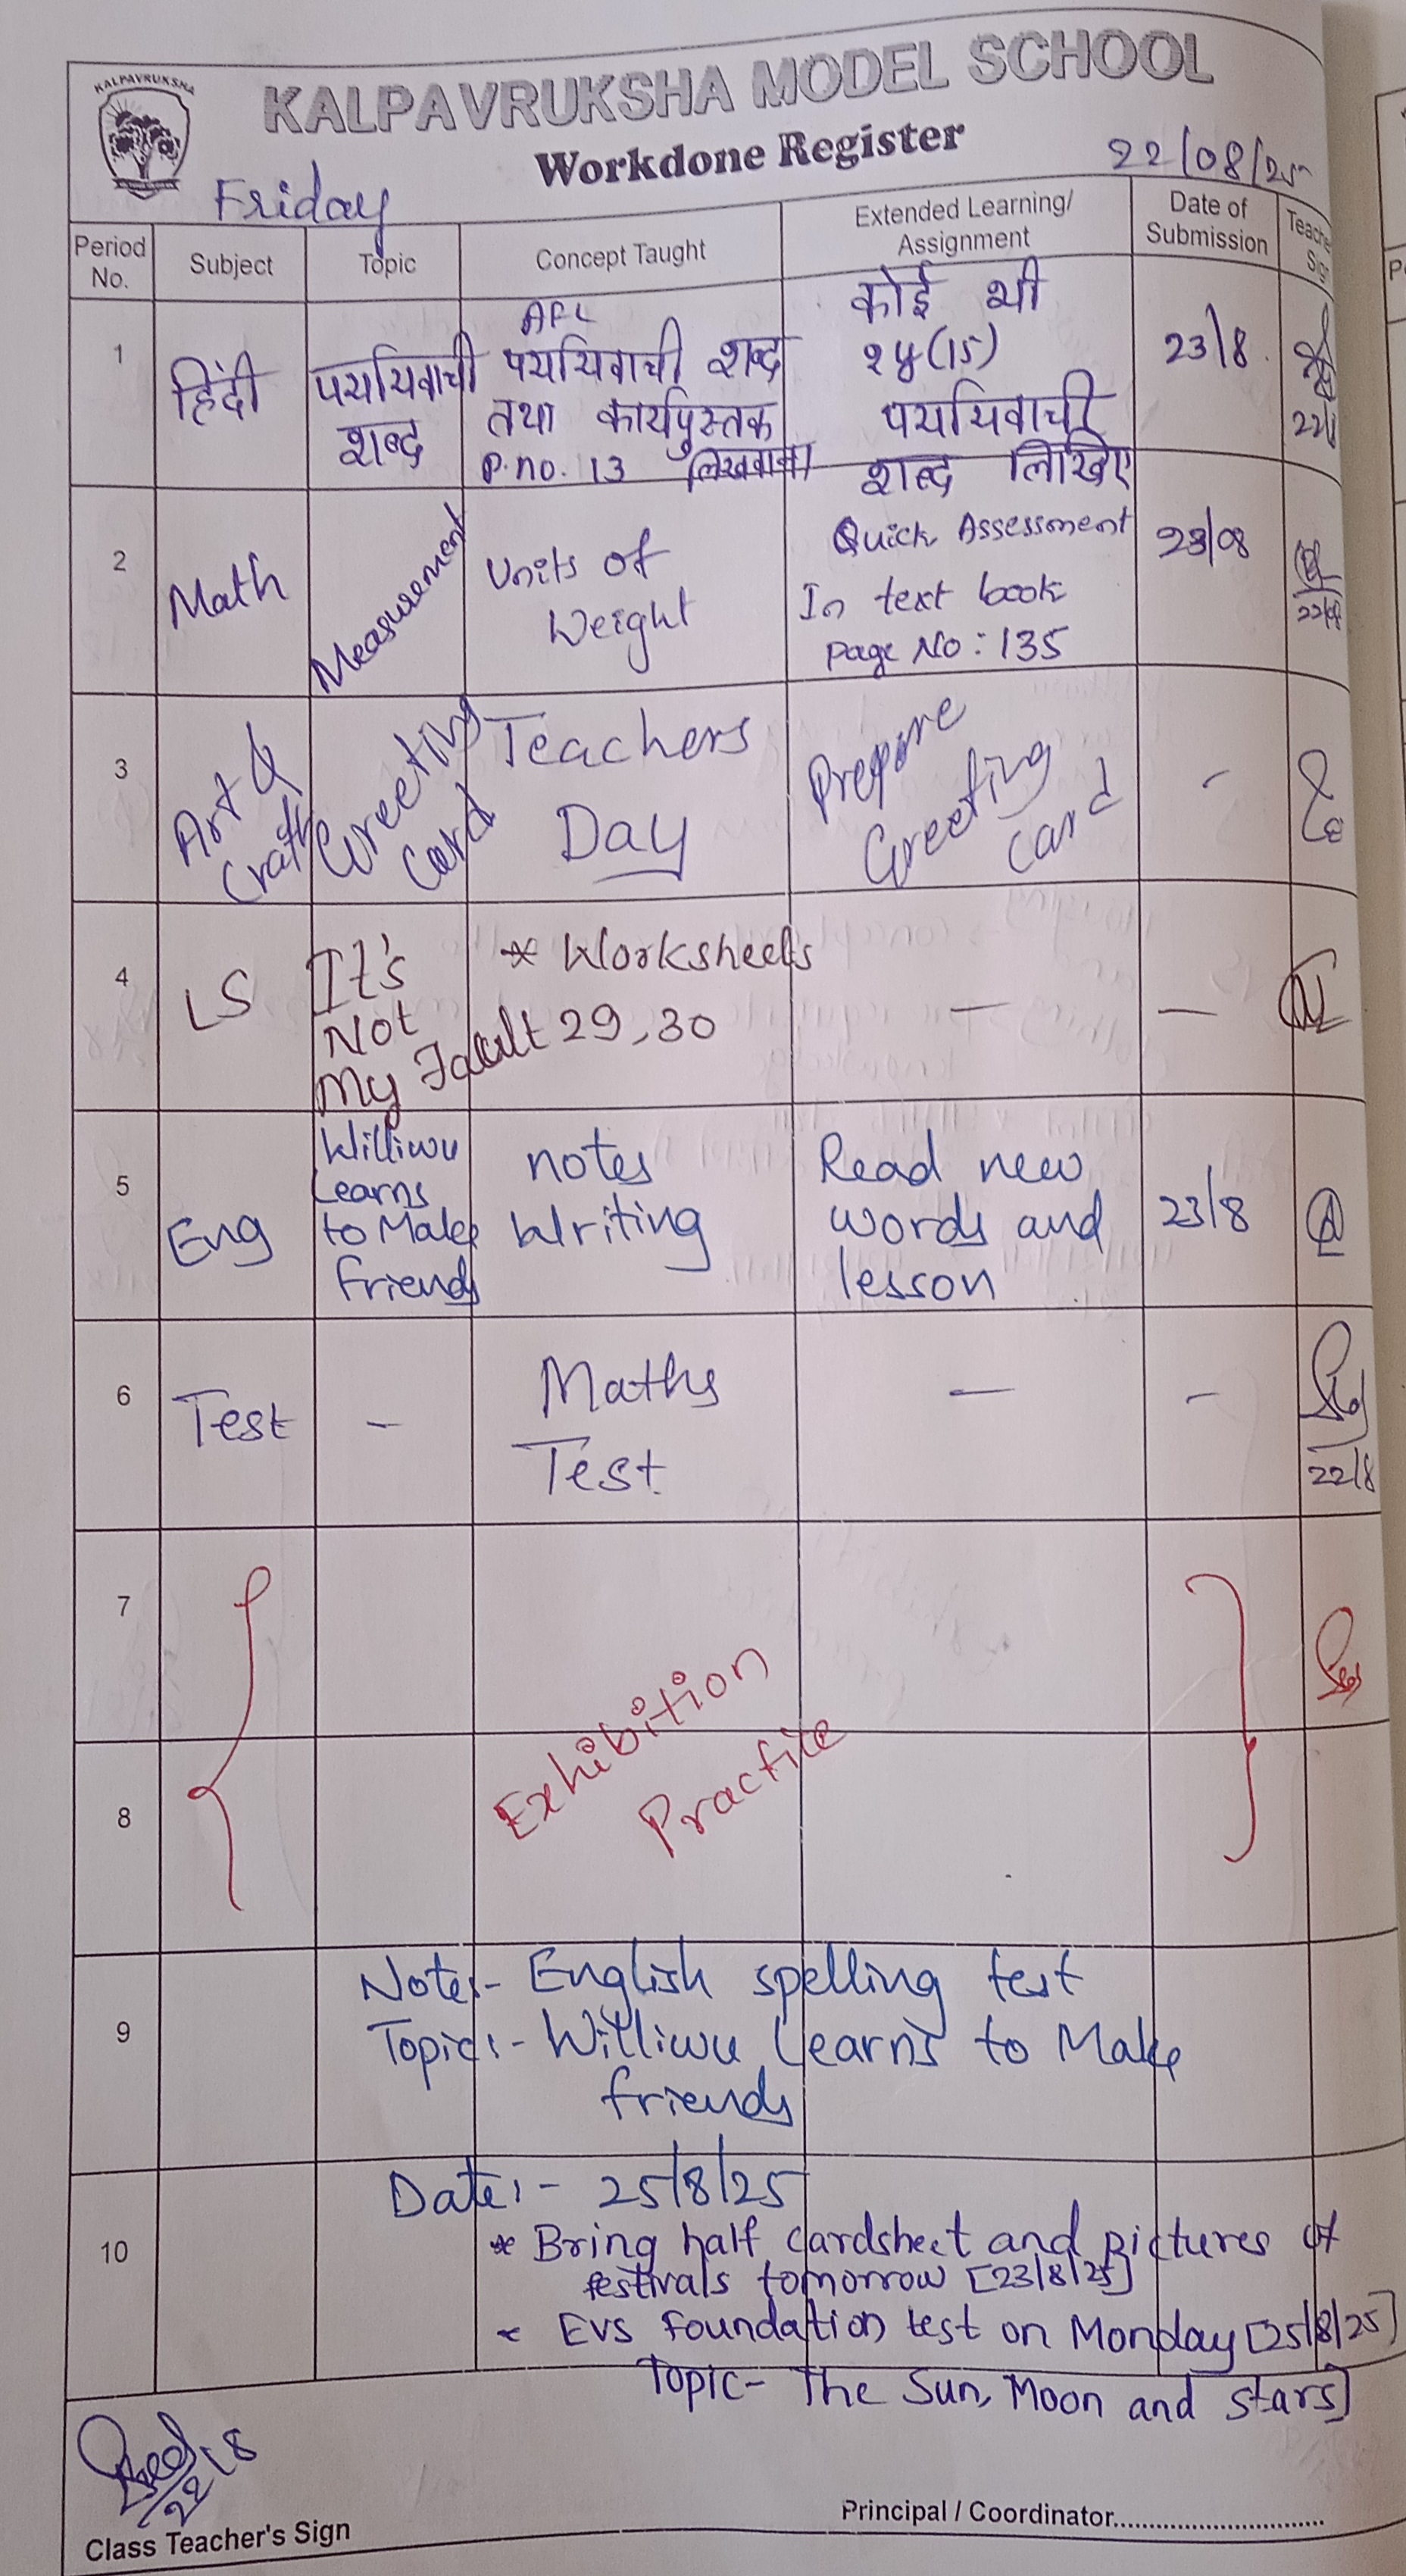 KALPAVRUKSHA
KALPAVRUKSHA MODEL SCHOOL
Workdone Register
Friday
22/08/25
Period No.
Subject
Topic
Concept Taught
Extended Learning/ Assignment
Date of Submission
1
हिंदी
पर्यायवाची
शब्द
AFL
पर्यायवाची शब्द
तथा कार्यपुस्तक
P.no. 13 लिखवाना
कोई भी
१५(15)
पर्यायवाची
शब्द लिखिए
23/8
2
Math
Measurement
Units of
Weight
Quick Assessment
In text book
Page No: 135
23/08
22/08
3
Art &
Craft
Greeting
Card
Teachers
Day
Prepare
Greeting
Card
-
4
LS
It's
Not
My Fault
* Worksheets
29, 30
—
—
5
Eng
Williwu
Learns
to Make
friends
notes
Writing
Read new
words and
lesson
23/8
6
Test
-
Maths
Test
—
-
22/8
7
8
Exhibition
Practice
9
Note:- English spelling test
Topic:- Williwu Learns to Make
friends
10
Date:- 25/8/25
* Bring half cardsheet and pictures of
festivals tomorrow [23/8/25]
* EVS Foundation test on Monday [25/8/25]
Topic- The Sun, Moon and stars]
22/8
Class Teacher's Sign
Principal / Coordinator..............................